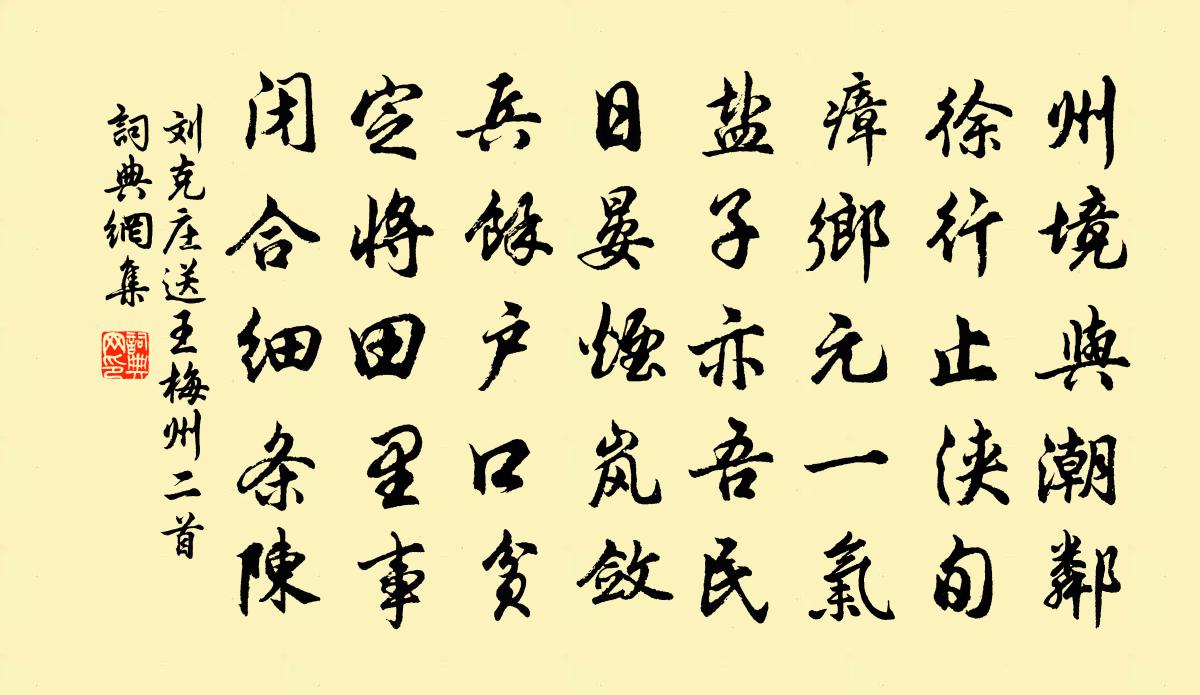 州境與潮鄰
徐行止浹旬
瘴鄉元一氣
盐子亦吾民
日晏煙岚斂
兵餘户口貧
定將田里事
闭合细条陳
刘克庄送王梅州二首
詞典網集
詞典網印